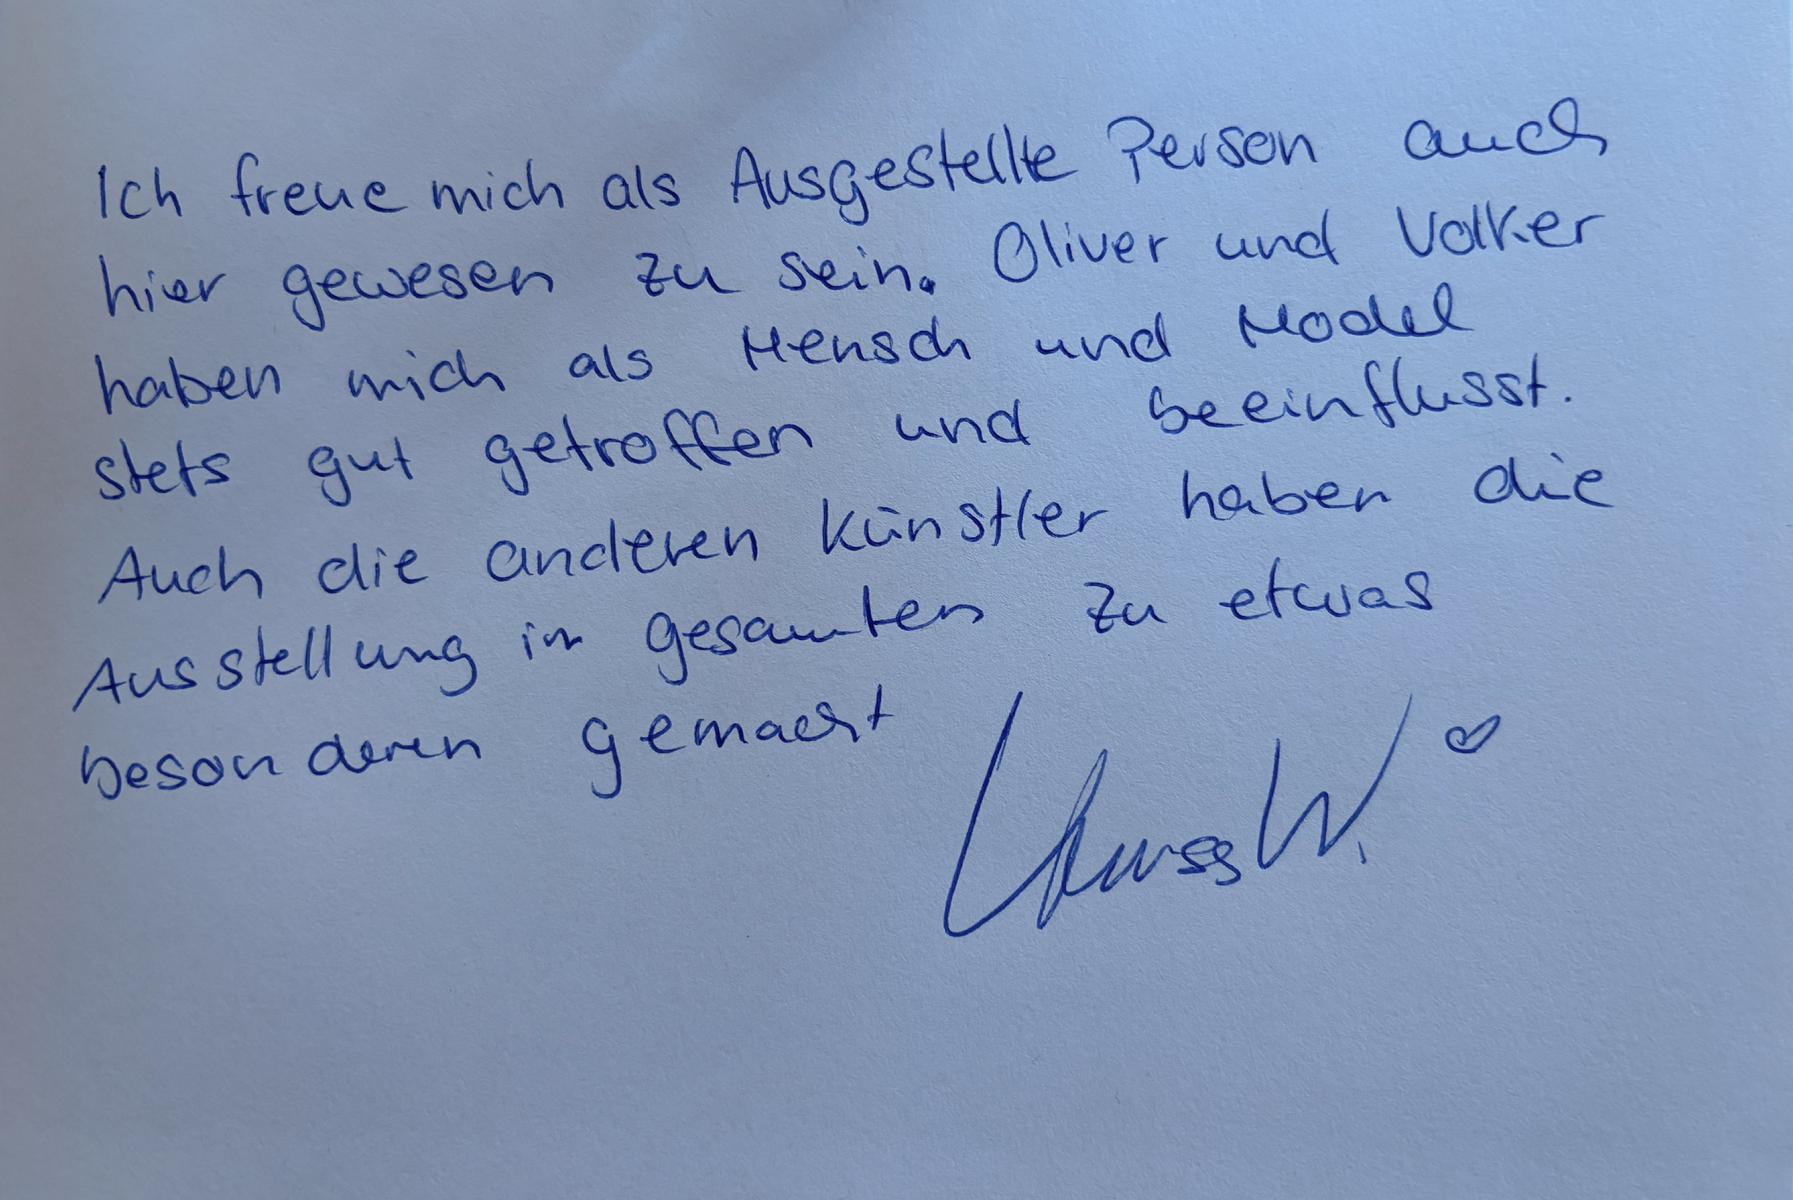 Ich freue mich als Ausgestellte Person auch
hier gewesen zu sein. Oliver und Volker
haben mich als Mensch und Model
stets gut getroffen und beeinflusst.
Auch die anderen Künstler haben die
Ausstellung im gesamten zu etwas
besonderen gemacht
W. ♡